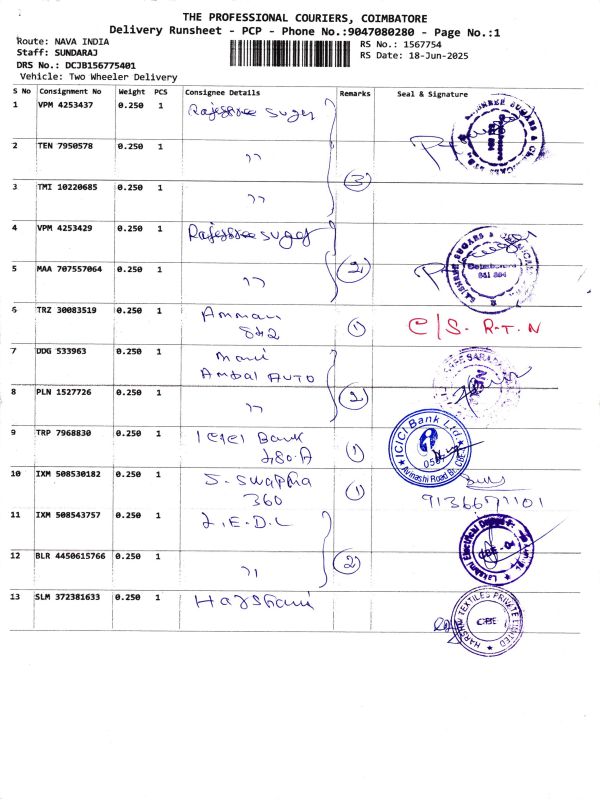 THE PROFESSIONAL COURIERS, COIMBATORE
Delivery Runsheet - PCP - Phone No.:9047080280 - Page No.:1
Route: NAVA INDIA
Staff: SUNDARAJ
DRS No.: DCJB156775401
Vehicle: Two Wheeler Delivery
RS No.: 1567754
RS Date: 18-Jun-2025
S No Consignment No Weight PCS Consignee Details Remarks Seal & Signature
1 VPM 4253437 0.250 1 Rajeshree suger
2 TEN 7950578 0.250 1 ,,
3 TMI 10220685 0.250 1 ,, 3
4 VPM 4253429 0.250 1 Rajeshree suger
5 MAA 707557064 0.250 1 ,, 2
6 TRZ 30083519 0.250 1 Amman 842 1 C/S. R.T.N
7 DDG 533963 0.250 1 Mani Ambal AUTO
8 PLN 1527726 0.250 1 ,, 2
9 TRP 7968830 0.250 1 ICICI Bank 480.A 1
ICICI Bank Ltd.
Avinashi Road Br. CBE
10 IXM 508530182 0.250 1 S. Swapna 360 1
11 IXM 508543757 0.250 1 L.E.D.L
12 BLR 4450615766 0.250 1 ,, 2
Lakshmi Electrical
13 SLM 372381633 0.250 1 Harshni
HARSHNI TEXTILES PRIVATE LIMITED
CBE